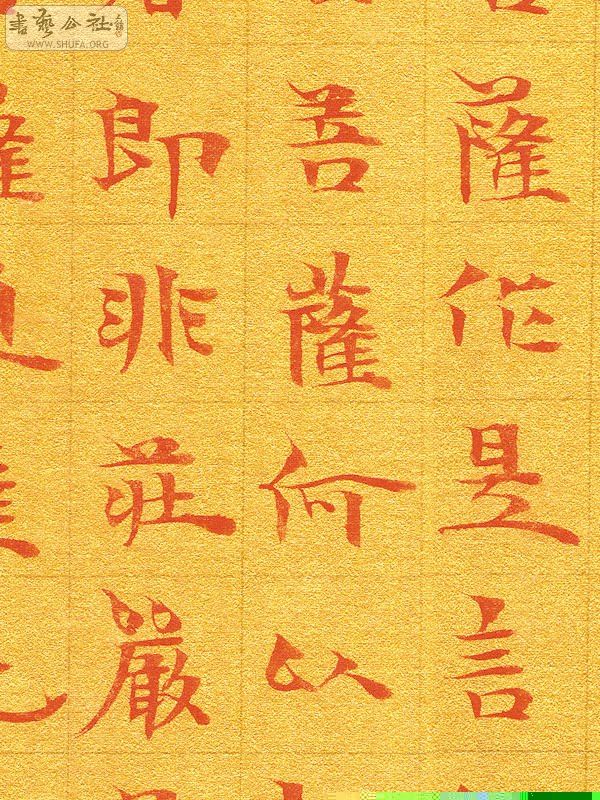 書藝公社
WWW.SHUFA.ORG
薩作是言
菩薩何以
即非莊嚴